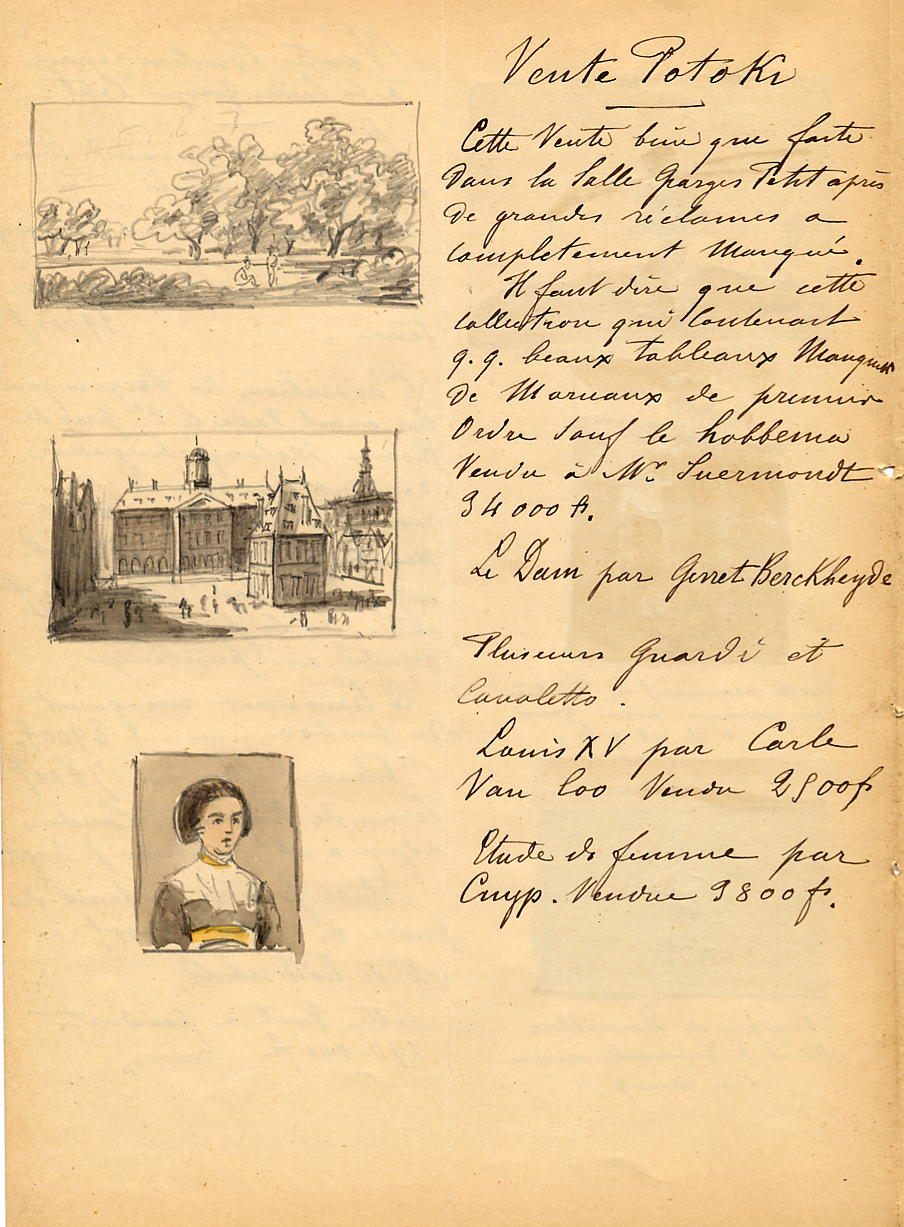 Vente Potoki
Cette Vente bien que faite
Dans la Salle Georges Petit après
de grandes réclames a
completement Manqué.
Il faut dire que cette
Collection qui Contenait
q.q. beaux tableaux Manquait
de Morceaux de premier
Ordre Sauf le hobbema
Vendu à Mr. Suermondt
34000 fr.
Le Dam par Gerret Berckheyde
Plusieurs Guardi et
Canaletto.
Louis XV par Carle
Van loo Vendu 2500 fr
Etude de femme par
Cuyp. Vendue 3800 fr.